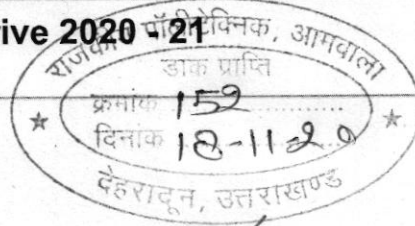 rive 2020 - 21
राजकीय पॉलीटेक्निक, आमवाला
डाक प्राप्ति
क्रमांक 152
दिनांक 18-11-20
देहरादून, उत्तराखण्ड